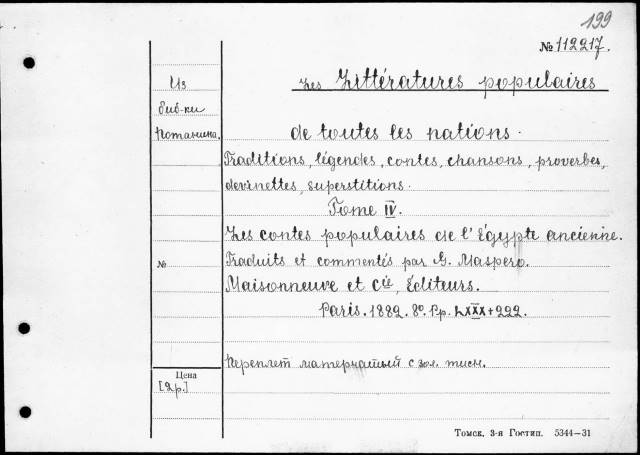 199
№ 112217.
Из
биб-ки
Потанина.
Les Littératures populaires
de toutes les nations.
Traditions, légendes, contes, chansons, proverbes,
devinettes, superstitions.
Tome IV.
Les contes populaires de l'Égypte ancienne.
№
Traduits et commentés par G. Maspero.
Maisonneuve et Cie, Éditeurs.
Paris. 1882. 8o. Pp. LXXX+222.
Переплет матерчатый с зол. тисн.
Цена
[2р.]
Томск. 3-я Гостип. 5344—31